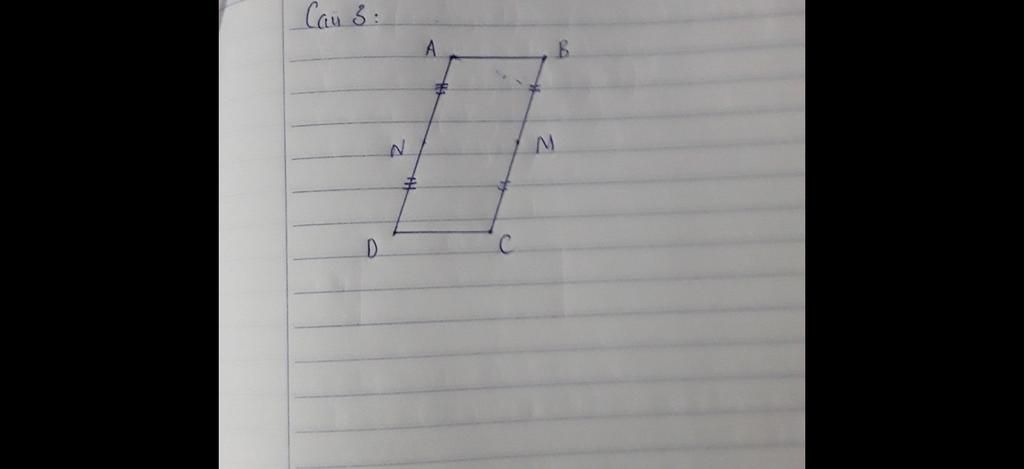 Câu 3:
A B
N M
D C